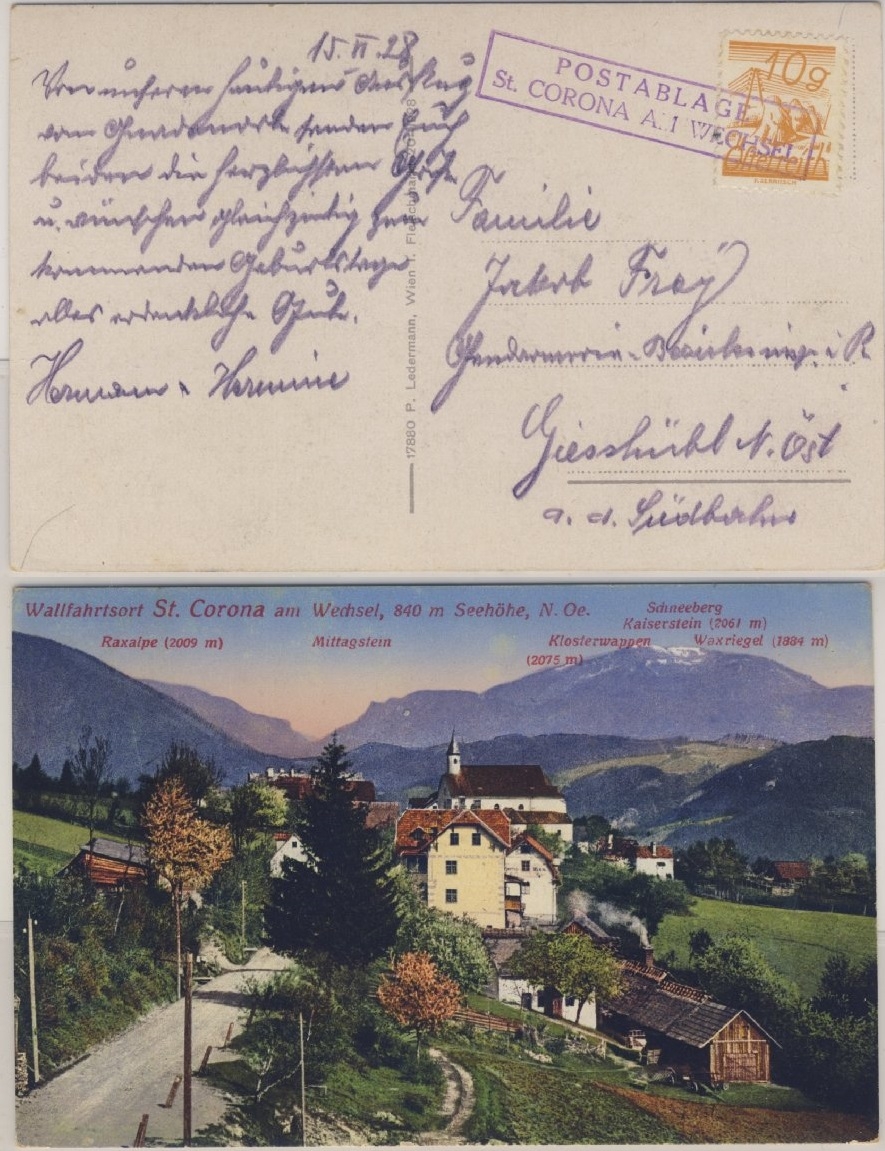 15. VI. 28
Von unserem heutigen Ausflug
vom Gnadenorte senden Euch
beiden die herzlichsten Grüße
u. wünschen gleichzeitig zum
kommenden Geburtstage
alles erdenkliche Gute.
Hermann u. Hermine
POSTABLAGE
St. CORONA A. WECHSEL
10g
Österreich
Familie
Jakob Frey
Gendarmerie-Bezirksinsp. i. R.
Giesshübl N. Öst
a. d. Südbahn
17880 P. Ledermann, Wien I. Fleischmarkt
Wallfahrtsort St. Corona am Wechsel, 840 m Seehöhe, N. Oe.
Schneeberg
Kaiserstein (2061 m)
Raxalpe (2009 m) Mittagstein Klosterwappen Waxriegel (1884 m)
(2075 m)